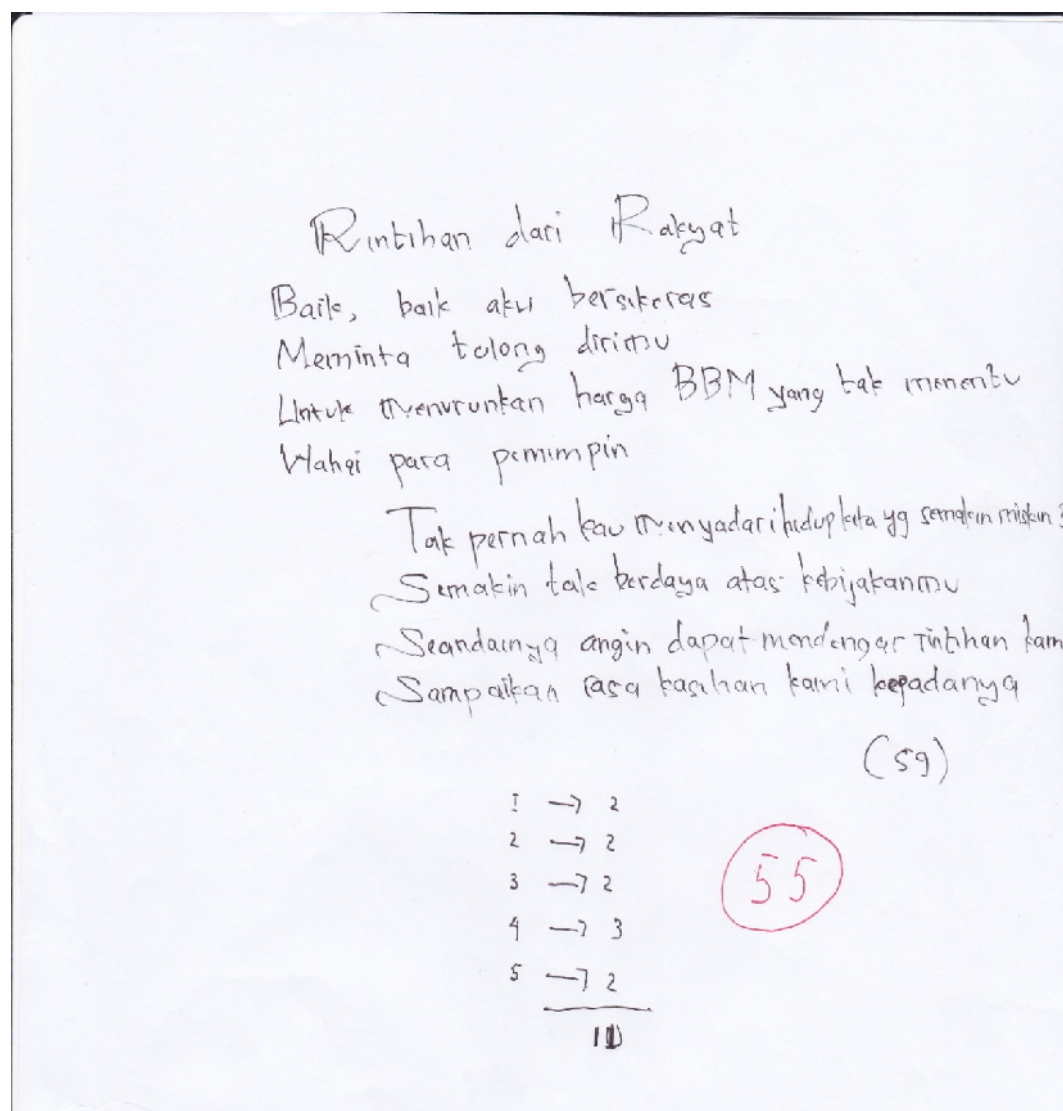 Rintihan dari Rakyat
Baik, baik aku bersikeras
Meminta tolong dirimu
Untuk menurunkan harga BBM yang tak menentu
Wahai para pemimpin
Tak pernah kau menyadari hidup kita yg semakin miskin
Semakin tak berdaya atas kebijakanmu
Seandainya angin dapat mendengar rintihan kam
Sampaikan rasa kasihan kami kepadanya
(59)
1 → 2
2 → 2
3 → 2
4 → 3
5 → 2
11
55